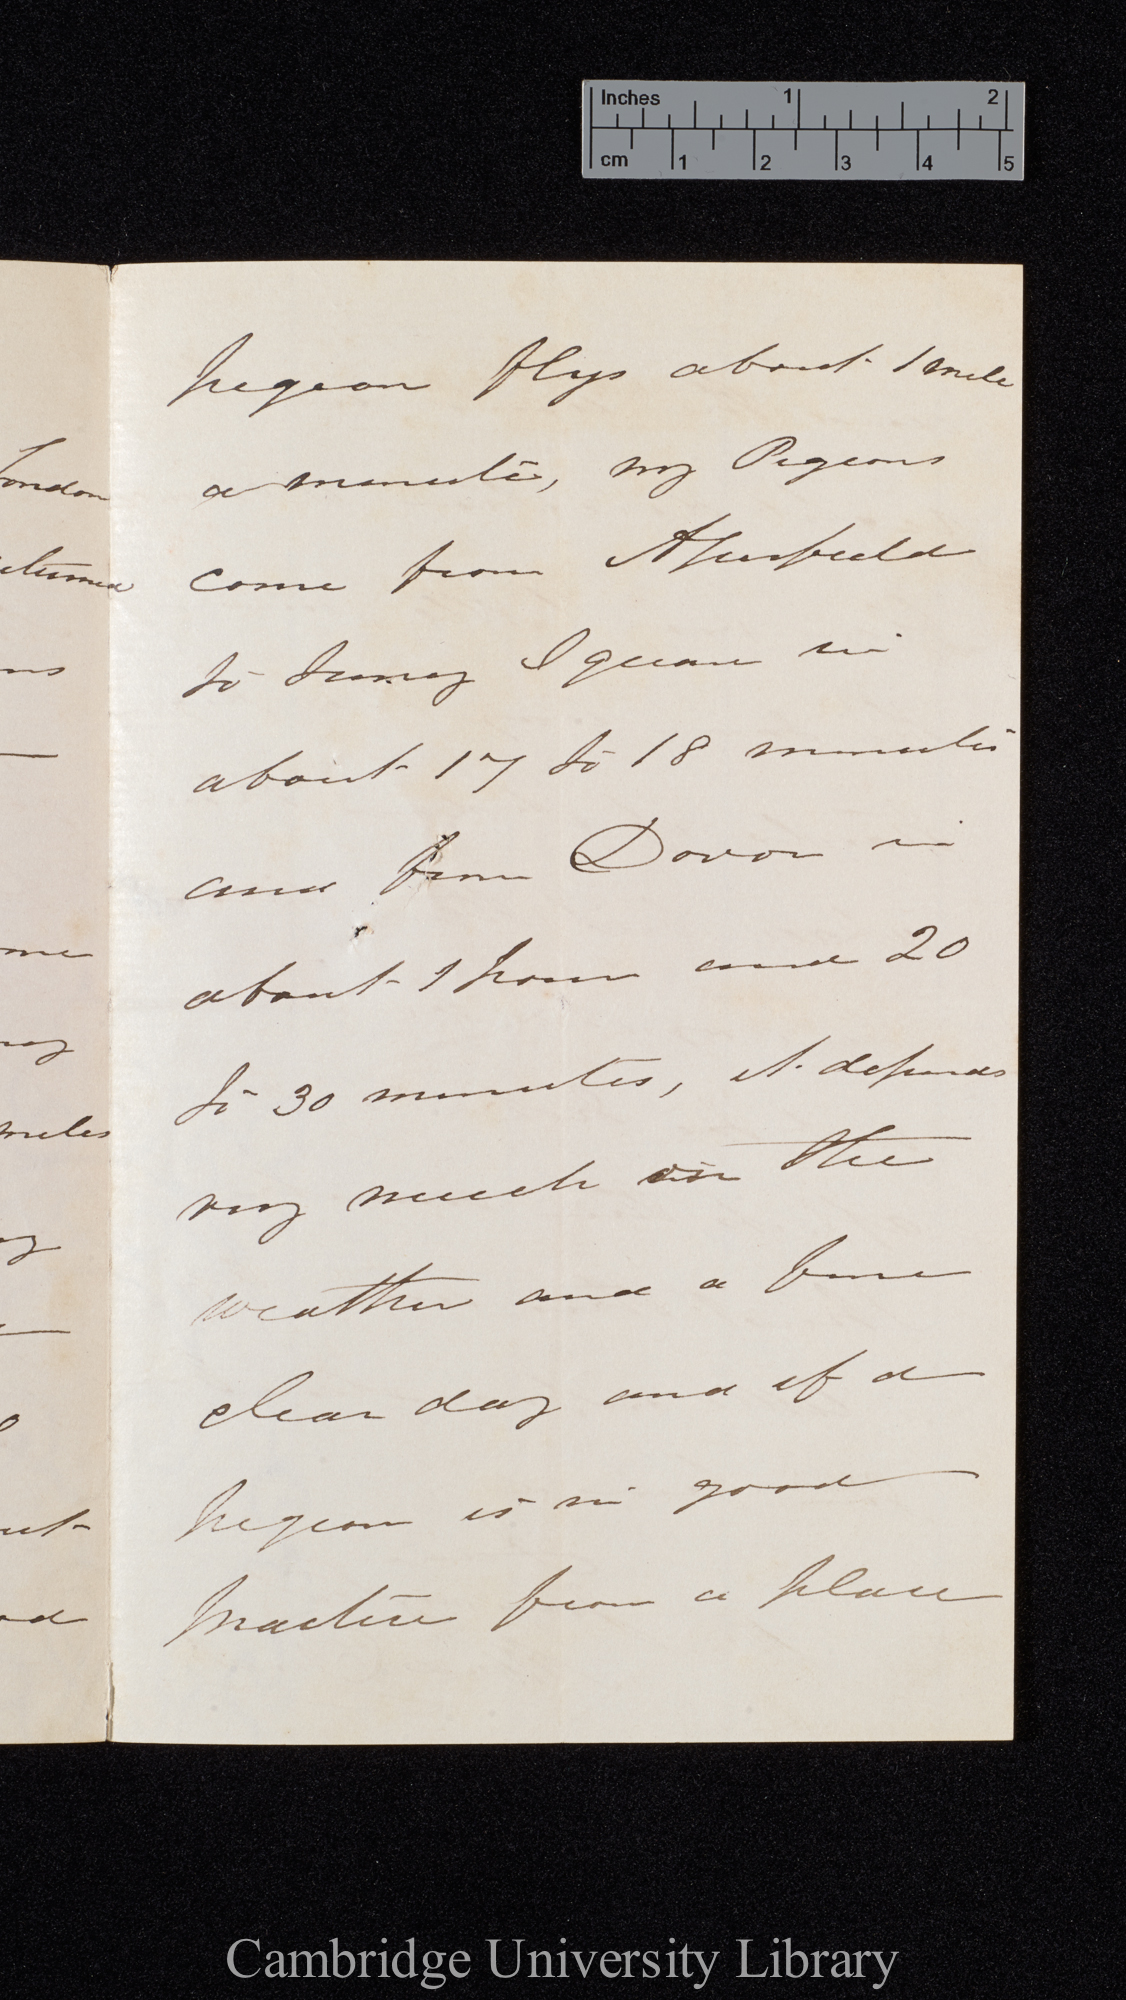 Inches 1 2
cm 1 2 3 4 5
London
me
miles
pigeon flys about 1 mile
a minute, my Pigeons
come from
to Surrey Square in
about 17 to 18 minutes
and from Dovor in
about 1 hour and 20
to 30 minutes, it depends
very much on the
weather and a fine
clear day and if a
pigeon is in good
practice from a place
Cambridge University Library